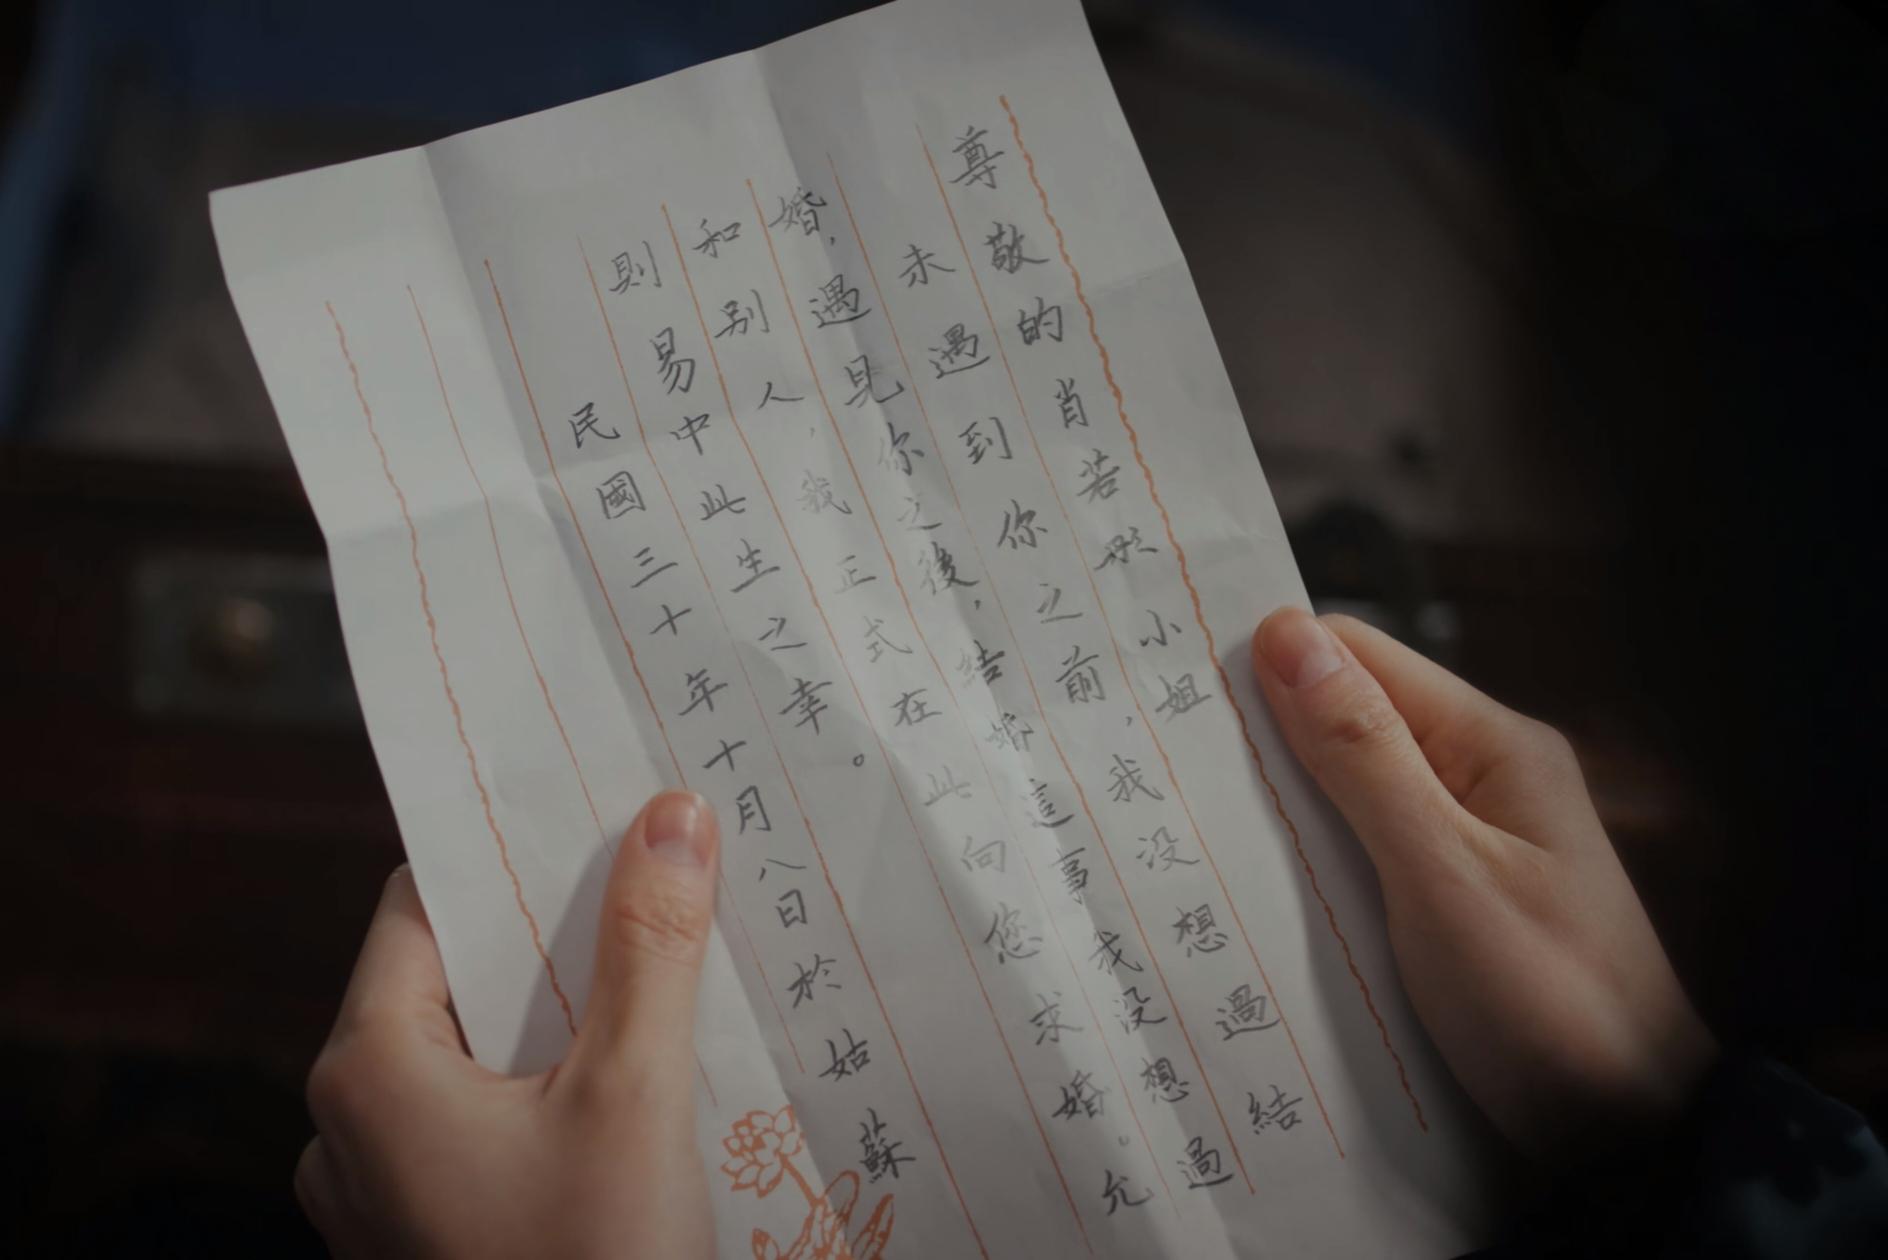 尊敬的肖若彤小姐
未遇到你之前，我没想過結
婚，遇見你之後，結婚這事我没想過
和别人，我正式在此向您求婚。允
則易中此生之幸。
民國三十年十月八日於姑蘇